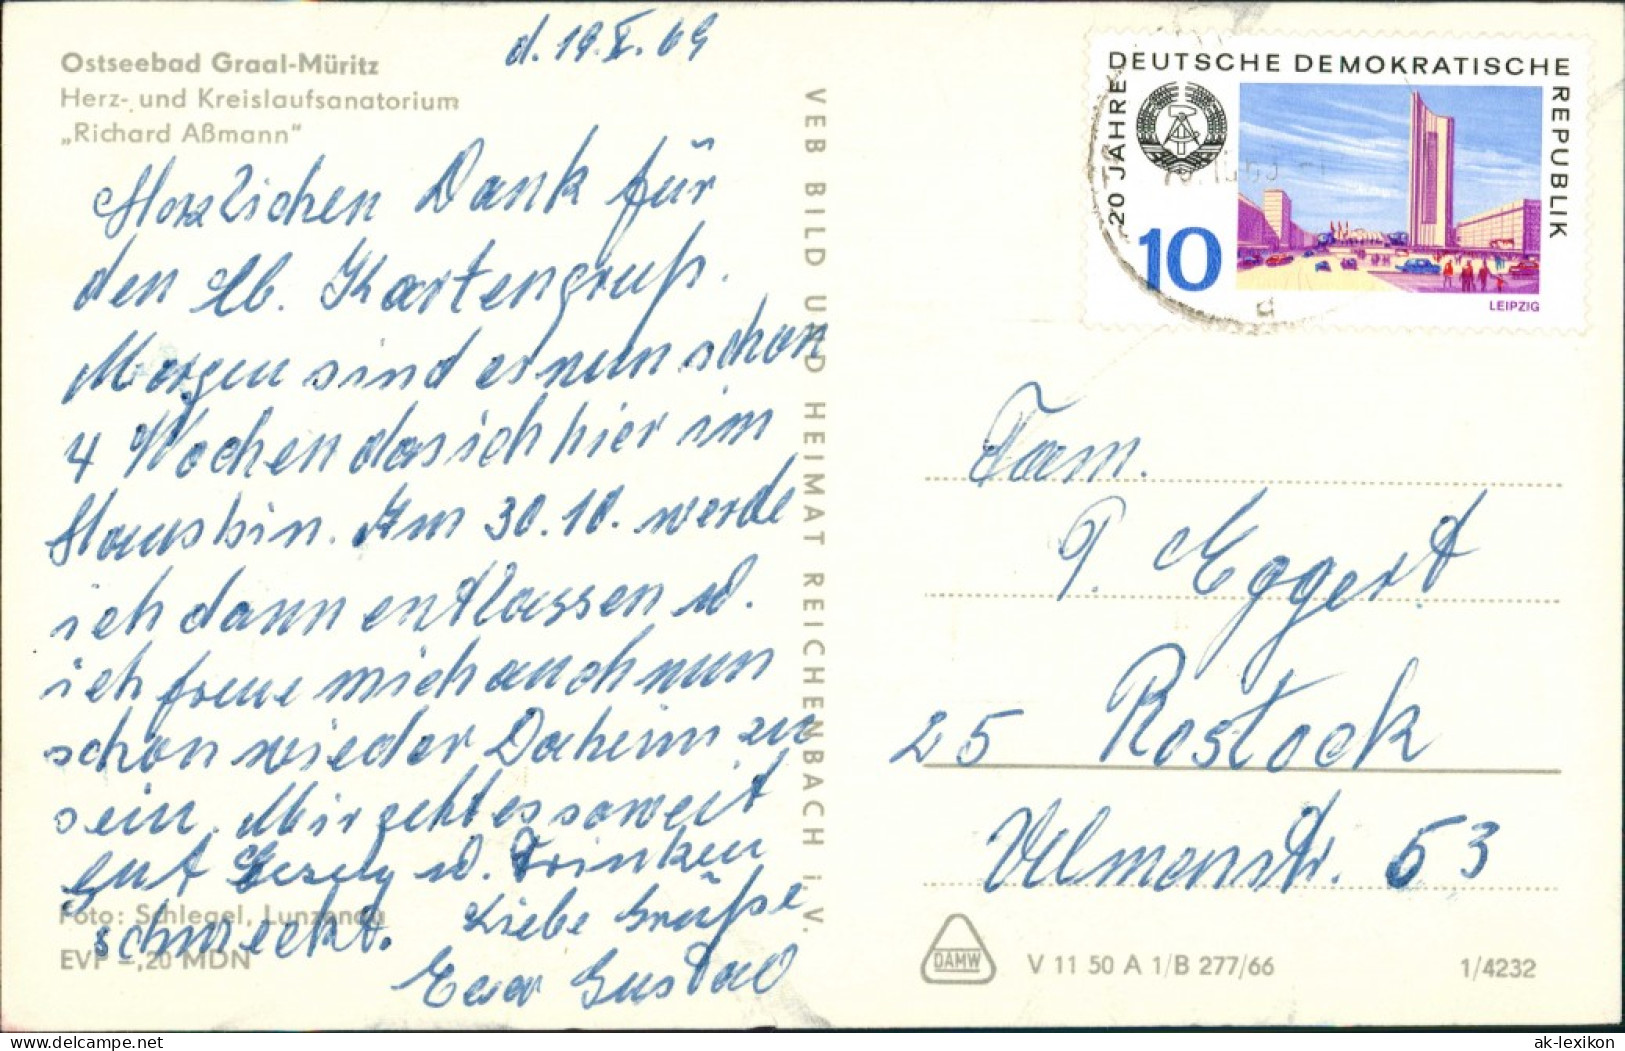 Ostseebad Graal-Müritz
Herz- und Kreislaufsanatorium
„Richard Aßmann"
d. 19.X.69
Herzlichen Dank für
den lb. Kartengruß.
Morgen sind es nun schon
4 Wochen das ich hier im
Haus bin. Am 30.10. werde
ich dann entlassen u.
ich freue mich auch nun
schon wieder Daheim zu
sein. Mir geht es soweit
gut u. Trinken
schmeckt. Liebe Grüße
Euer Gustav
Foto: Schlegel, Lunzenau
EVP –,20 MDN
VEB BILD UND HEIMAT REICHENBACH i. V.
20 JAHRE DEUTSCHE DEMOKRATISCHE REPUBLIK
10
LEIPZIG
Fam.
P. Eggert
25 Rostock
Ulmenstr. 53
DAMW
V 11 50 A 1/B 277/66
1/4232
hit-kny
ak-lexikon